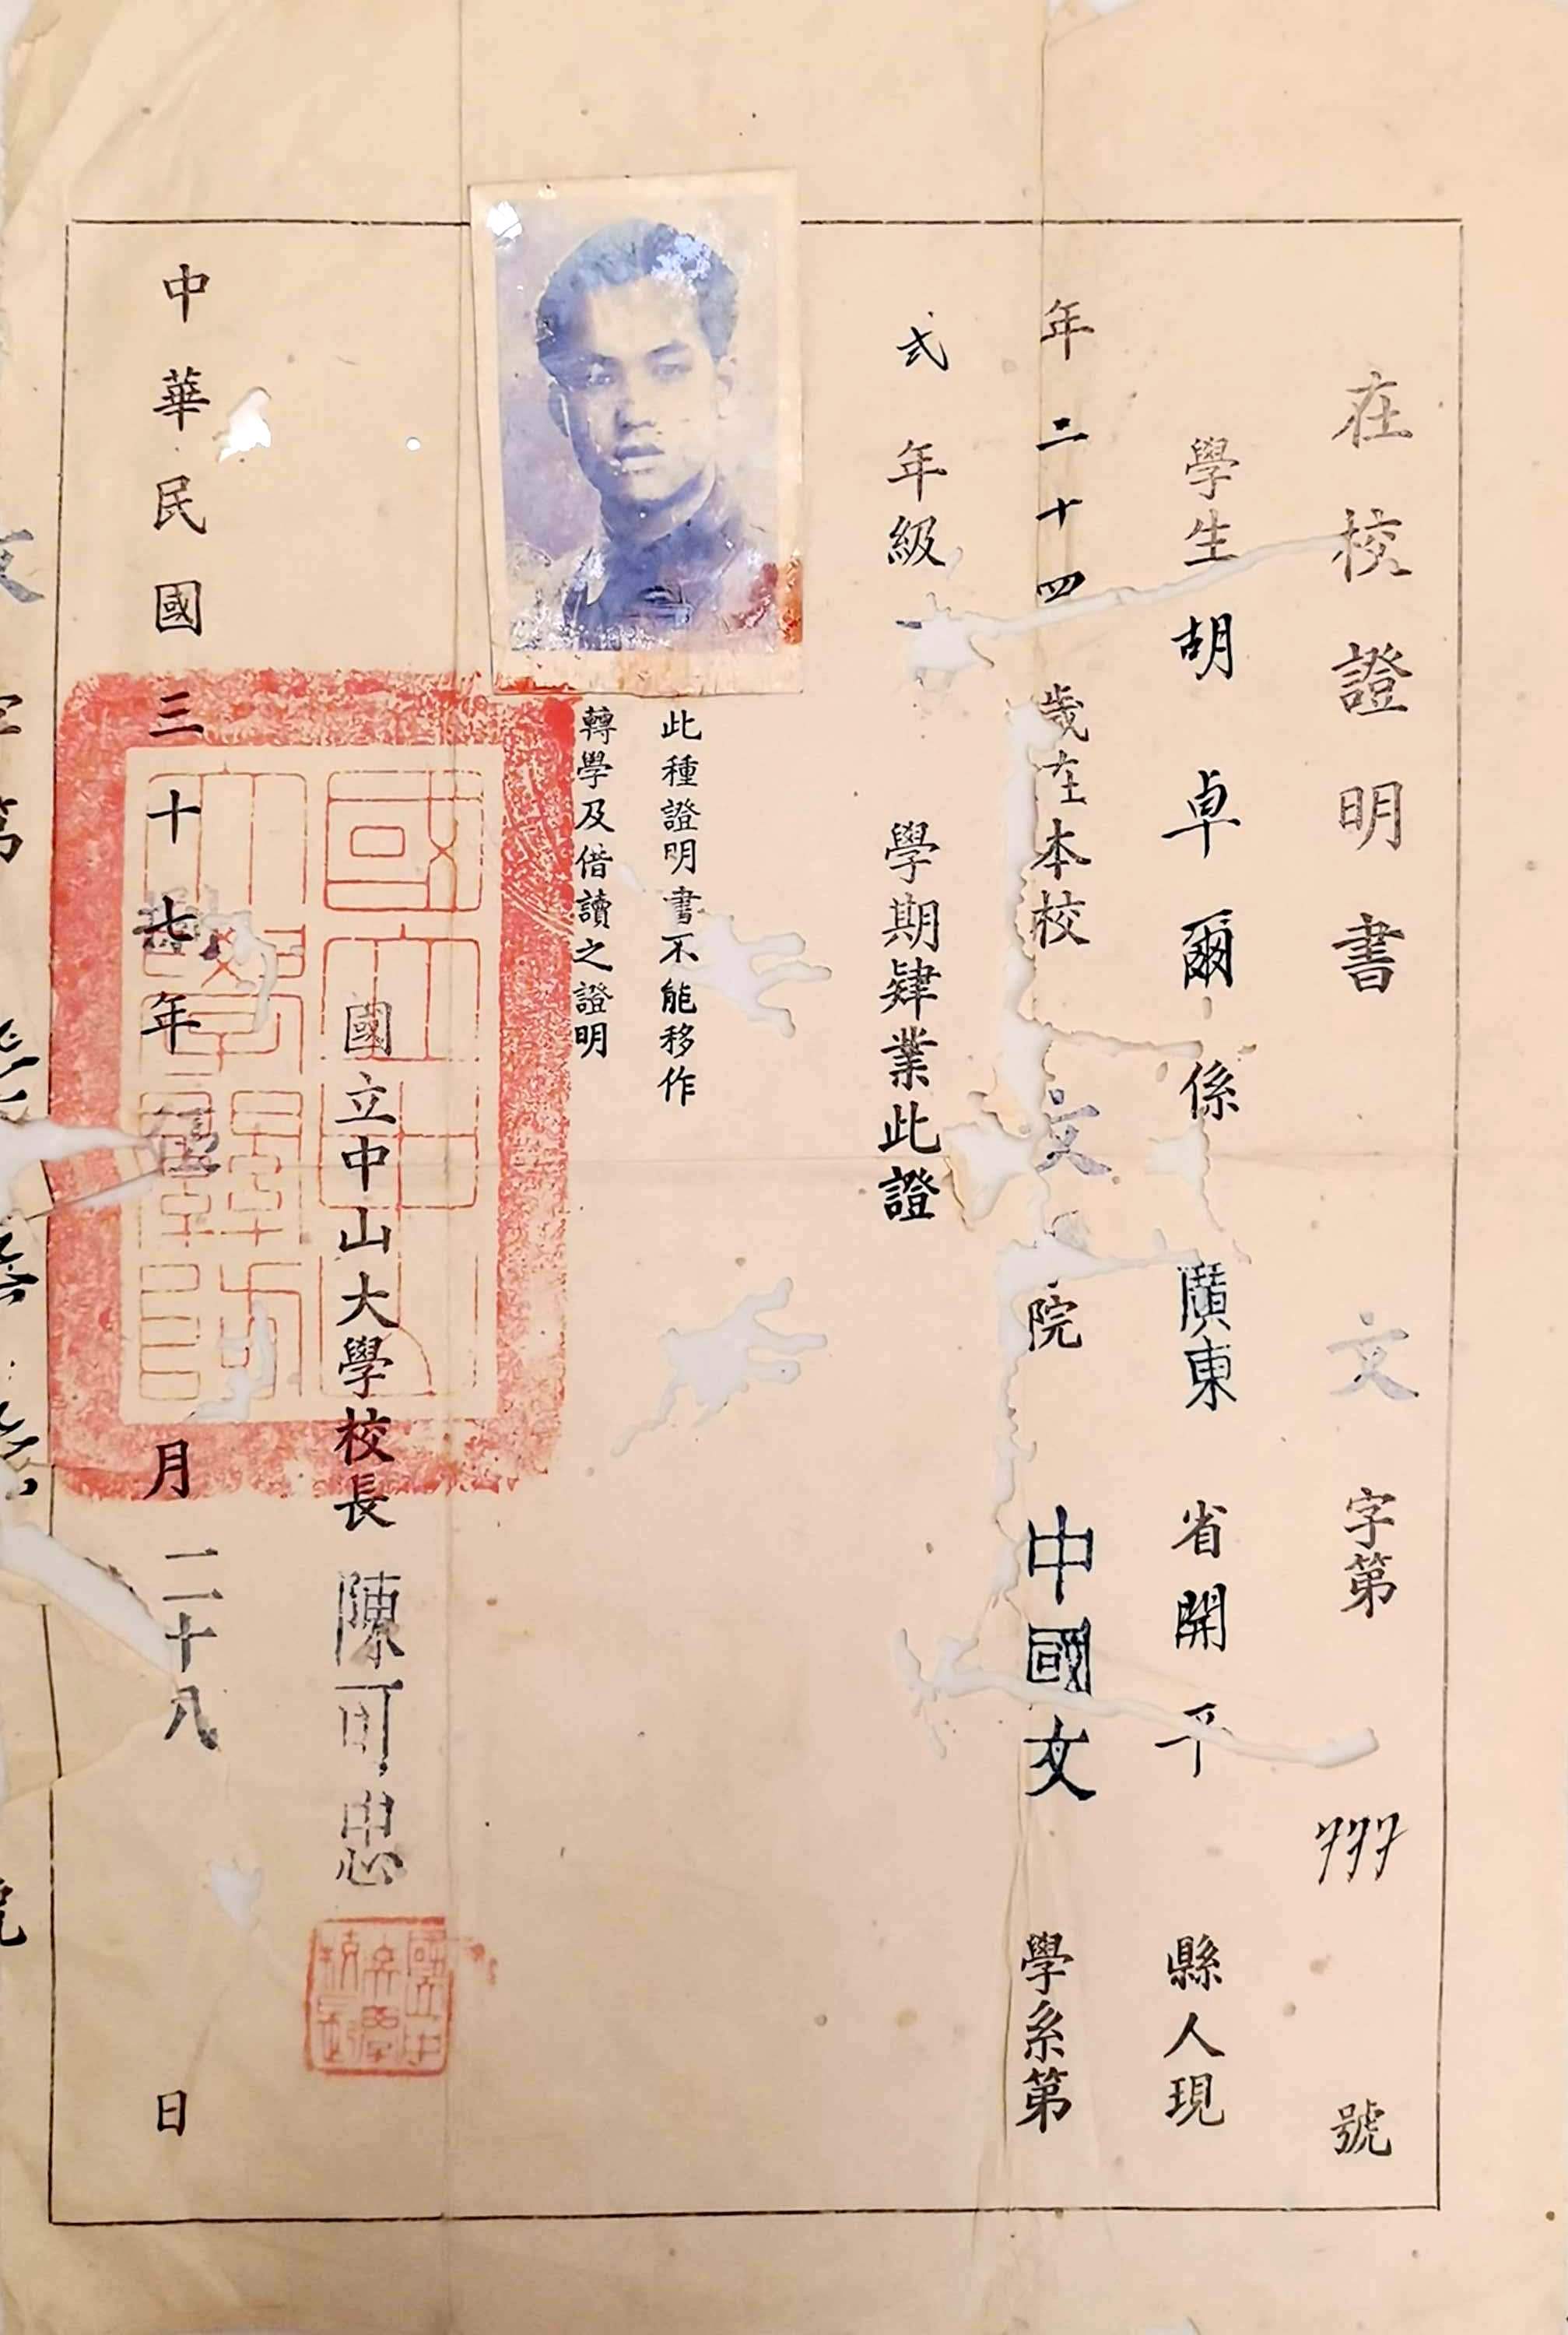 在校證明書 文字第 777 號
學生胡卓爾係廣東省開平縣人現
年二十四歲在本校文 院中國文學系第
弍年級 學期肄業此證
此種證明書不能移作
轉學及借讀之證明
國立中山大學校長陳可忠
中華民國三十 年伍月二十八日